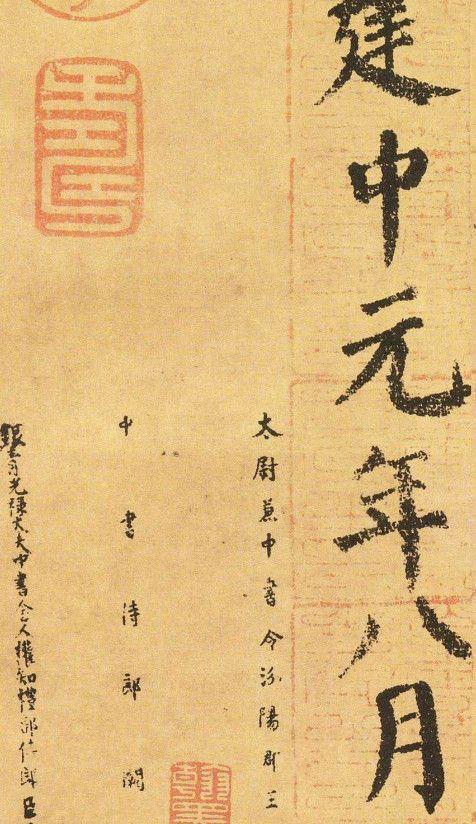 建中元年八月
太尉兼中書令汾陽郡王
中書侍郎闕
銀青光祿大夫中書舍人權知禮部侍郎臣